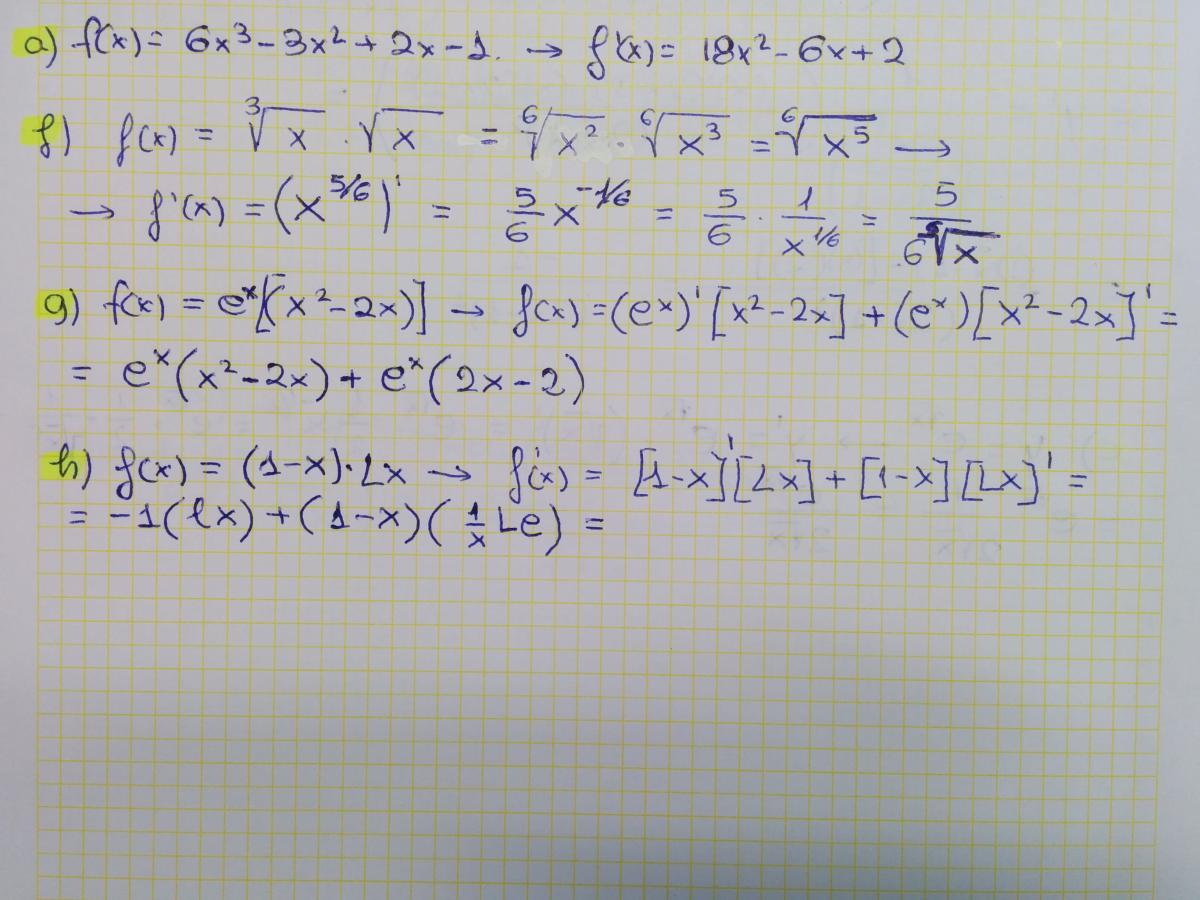 a) f(x) = 6x³ - 3x² + 2x - 1. → f'(x) = 18x² - 6x + 2
f) f(x) = ∛x · √x = ⁶√x² · ⁶√x³ = ⁶√x⁵ →
→ f'(x) = (x^5/6)' = 5/6 x^-1/6 = 5/6 · 1/x^1/6 = 5/6√x
g) f(x) = eˣ[(x² - 2x)] → f(x) = (eˣ)' [x² - 2x] + (eˣ) [x² - 2x]' =
= eˣ(x² - 2x) + eˣ(2x - 2)
h) f(x) = (1-x)·Lx → f'(x) = [1-x]' [Lx] + [1-x] [Lx]' =
= -1(lx) + (1-x)(1/x Le) =